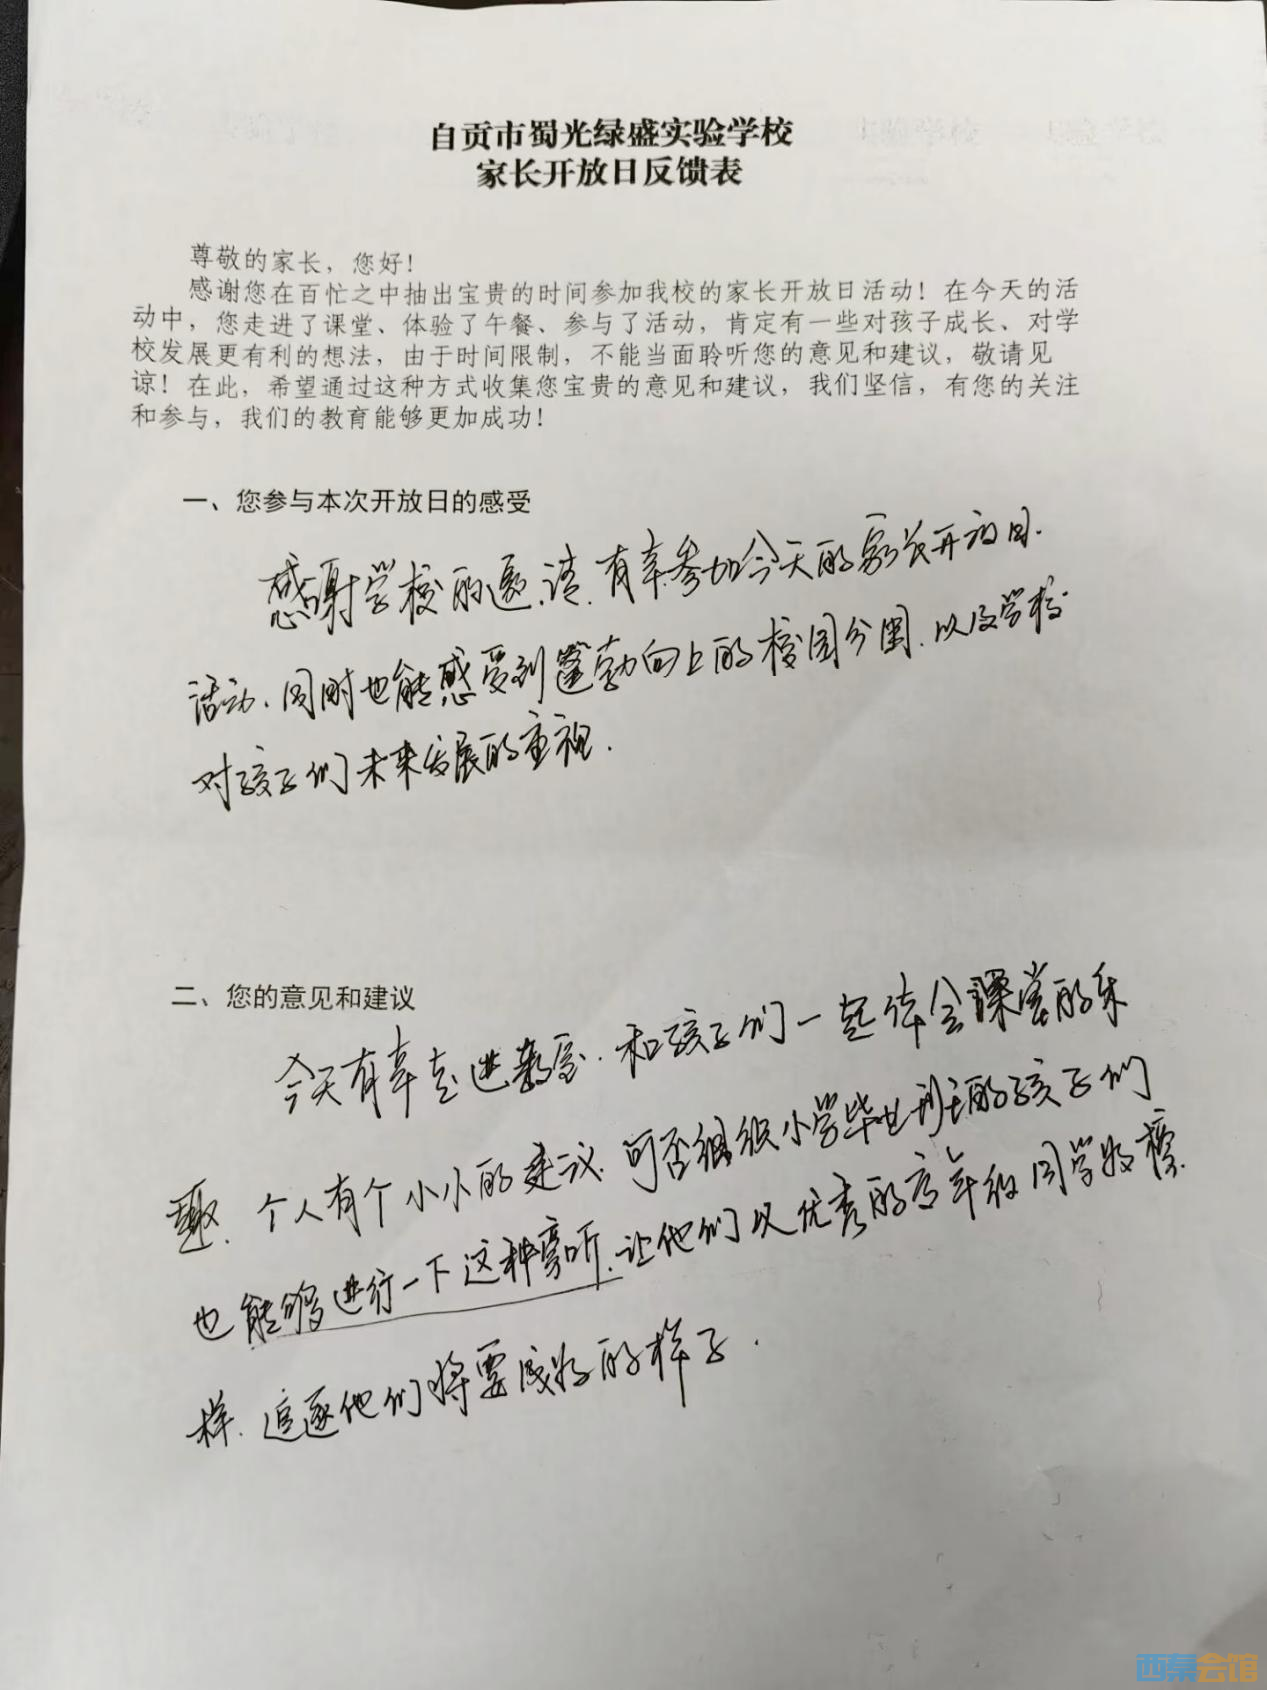 自贡市蜀光绿盛实验学校
家长开放日反馈表
尊敬的家长，您好！
感谢您在百忙之中抽出宝贵的时间参加我校的家长开放日活动！在今天的活
动中，您走进了课堂、体验了午餐、参与了活动，肯定有一些对孩子成长、对学
校发展更有利的想法，由于时间限制，不能当面聆听您的意见和建议，敬请见
谅！在此，希望通过这种方式收集您宝贵的意见和建议，我们坚信，有您的关注
和参与，我们的教育能够更加成功！
一、您参与本次开放日的感受
感谢学校的邀请.有幸参加今天的家长开放日.
活动.同时也能感受到蓬勃向上的校园分围.以及学校
对孩子们未来发展的重视.
二、您的意见和建议
今天有幸走进教室.和孩子们一起体会课堂的乐
趣.个人有个小小的建议.可否组织小学毕业班的孩子们
也能够进行一下这种旁听.让他们以优秀的高年级同学为榜
样.追逐他们将要成为的样子.
西秦会馆